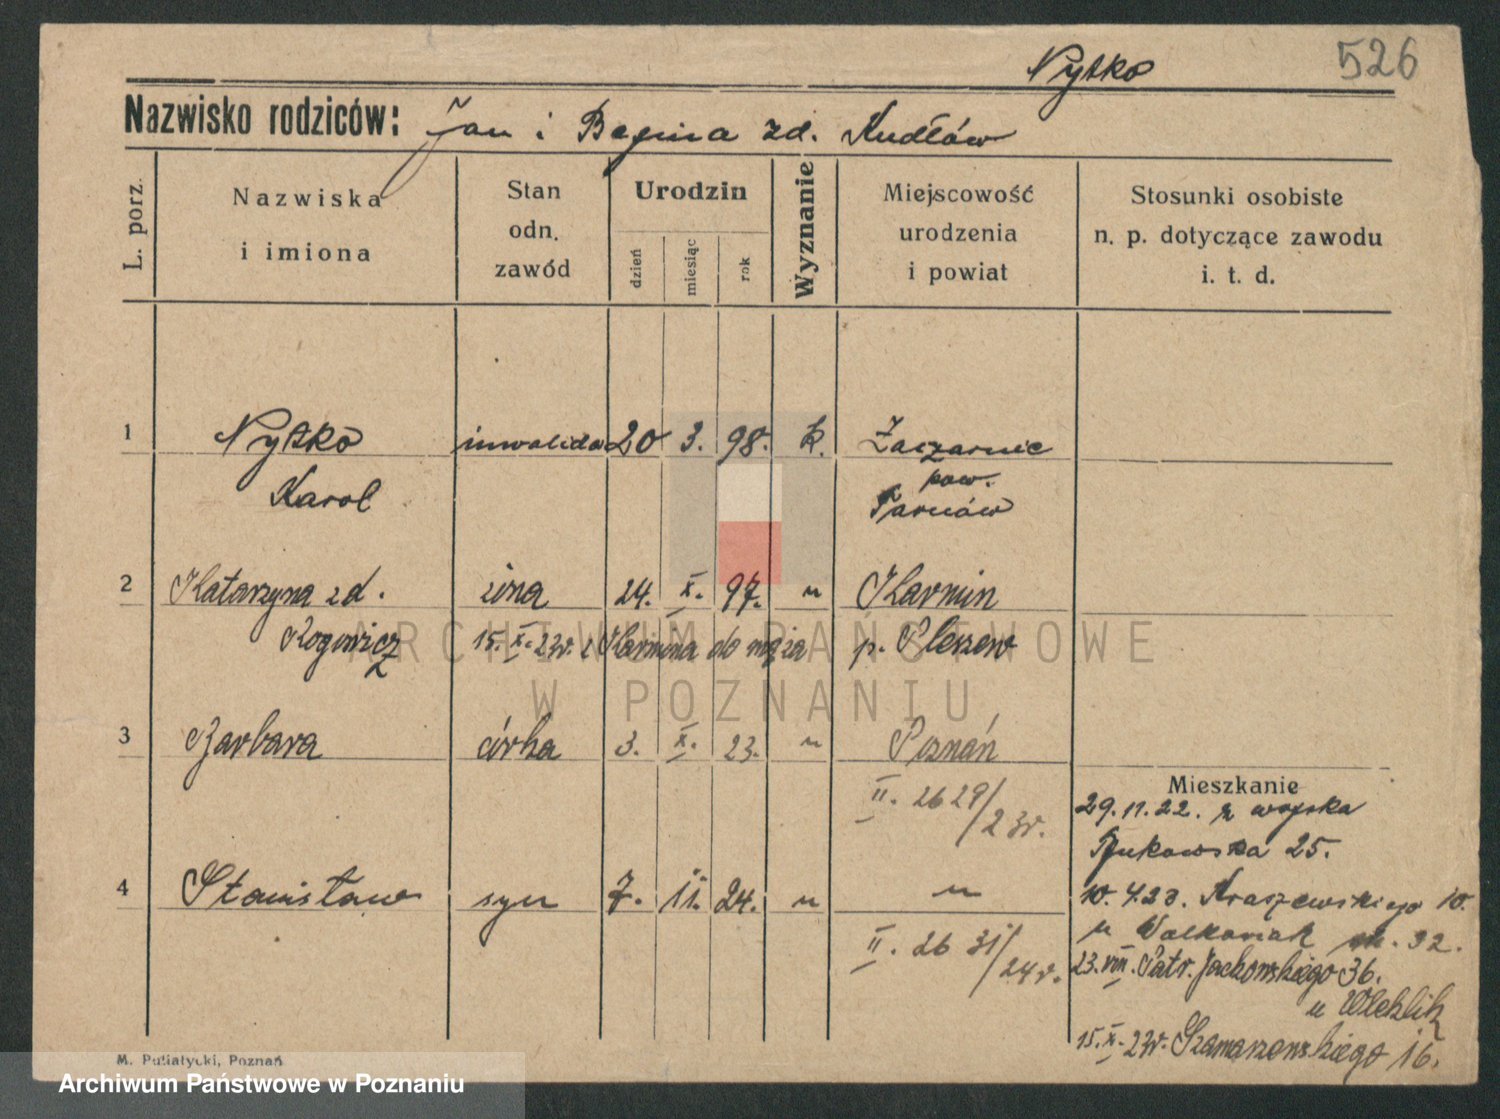 Nytko 526
Nazwisko rodziców: Jan i Regina zd. Kudłów
L. porz.
Nazwiska
i imiona
Stan
odn.
zawód
Urodzin
dzień
miesiąc
rok
Wyznanie
Miejscowość
urodzenia
i powiat
Stosunki osobiste
n. p. dotyczące zawodu
i. t. d.
1 Nytko inwalida 20 3. 98. k. Zaczarnie
Karol pow.
Tarnów
2 Katarzyna zd. żona 24. X. 97. " Karmin
Rogowicz 15. X. 23r. z Karmina do męża p. Pleszew
3 Barbara córka 3. X. 23. " Poznań
II. 26 29/23r.
Mieszkanie
29.11.22. z wojska
Bukowska 25.
4 Stanisław syn 7. 11. 24. " "
II. 26 31/24r.
10. 4.23. Kraszewskiego 10.
u Walkowiak m. 32.
23. VIII. Patr. Jackowskiego 36.
u
15. X. 23r. Szamarzewskiego 16.
M. Putiatycki, Poznań
ARCHIWUM PAŃSTWOWE
W POZNANIU
Archiwum Państwowe w Poznaniu